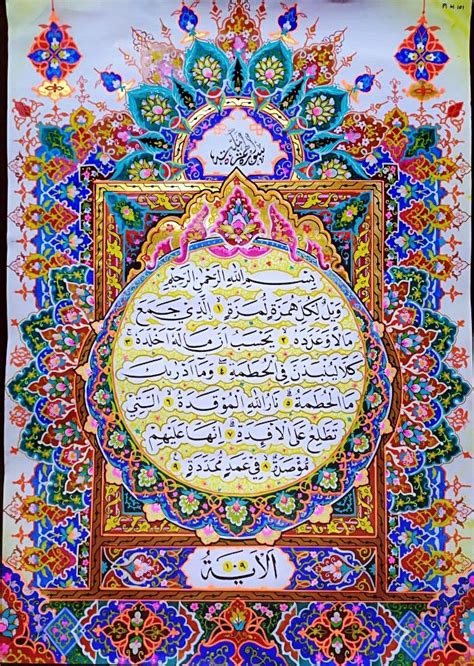 بِسْمِ اللهِ الرَّحْمٰنِ الرَّحِيْمِ
وَيْلٌ لِكُلِّ هُمَزَةٍ لُمَزَةٍ ١ الَّذِيْ جَمَعَ
مَالًا وَعَدَّدَهٗ ٢ يَحْسَبُ اَنَّ مَالَهٗ اَخْلَدَهٗ ٣
كَلَّا لَيُنْبَذَنَّ فِى الْحُطَمَةِ ٤ وَمَا اَدْرٰىكَ
مَا الْحُطَمَةُ ٥ نَارُ اللهِ الْمُوْقَدَةُ ٦ الَّتِيْ
تَطَّلِعُ عَلَى الْاَفْـِٕدَةِ ٧ اِنَّهَا عَلَيْهِمْ
مُؤْصَدَةٌ ٨ فِيْ عَمَدٍ مُمَدَّدَةٍ ٩
اَلْاٰيَةُ
١-٩